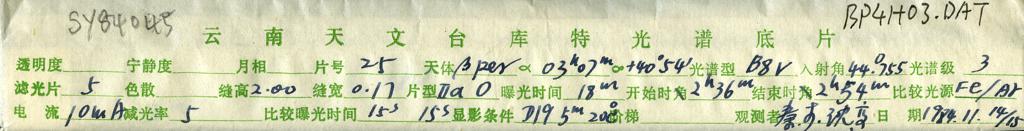 SY84045 BP4H03.DAT
云南天文台库特光谱底片
透明度 宁静度 月相 片号 25 天体 β per α 03h07m δ +40°54' 光谱型 B8V 入射角 44.°755 光谱级 3
滤光片 5 色散 缝高 2.00 缝宽 0.17 片型 IIa O 曝光时间 18m 开始时刻 2h36m 结束时刻 2h54m 比较光源 Fe/Ar
电流 10mA 减光率 5 比较曝光时间 15s 15s 显影条件 D19 5m 20° 阶梯 观测者 日期 1984.11.14/15